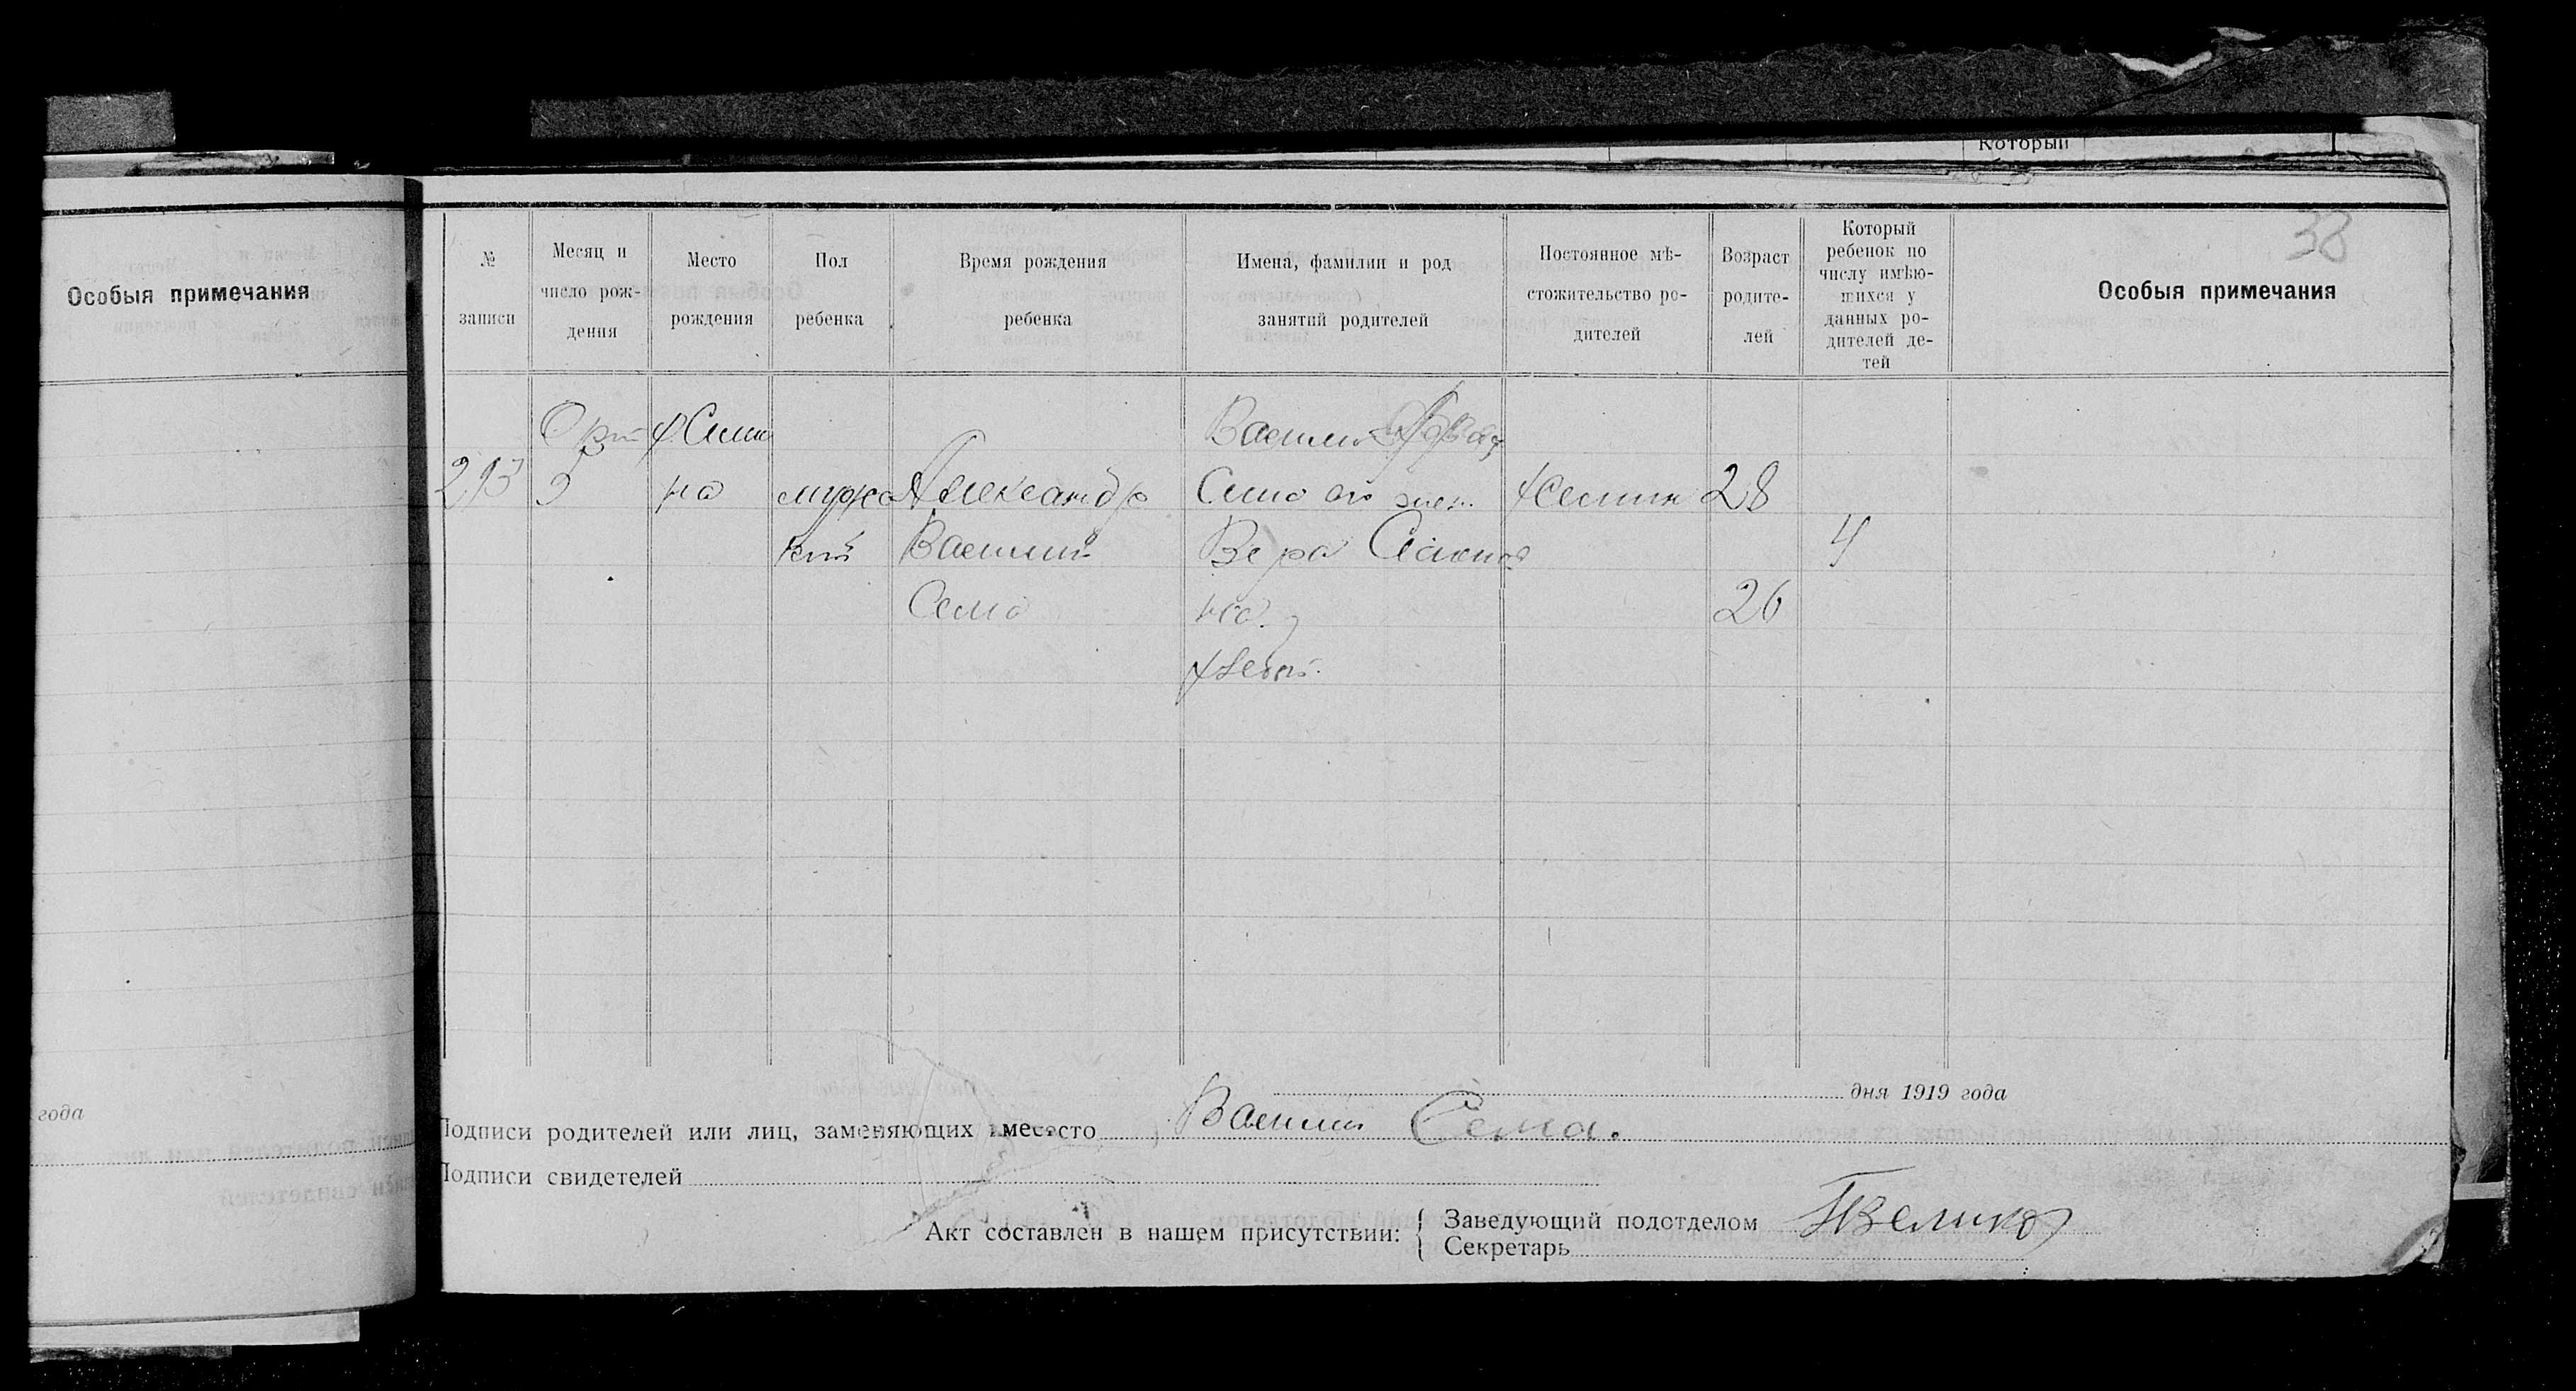 Который
38
Особыя примечания
№ записи
Месяц и число рож- дения
Место рождения
Пол ребенка
Время рождения ребенка
Имена, фамилии и род занятий родителей
Постоянное мѣ- стожительство ро- дителей
Возраст родите- лей
Который ребенок по числу имѣю- щихся у данных ро- дителей де- тей
Особыя примечания
Окт Василий
293 5 на мужс Александр Сема его жен. 28
кий Василий Вера 4
Сема на. 26
дня 1919 года
года
Подписи родителей или лиц, заменяющих вмесεто Василий Сема.
Подписи свидетелей
Акт составлен в нашем присутствии: { Заведующий подотделом
Секретарь